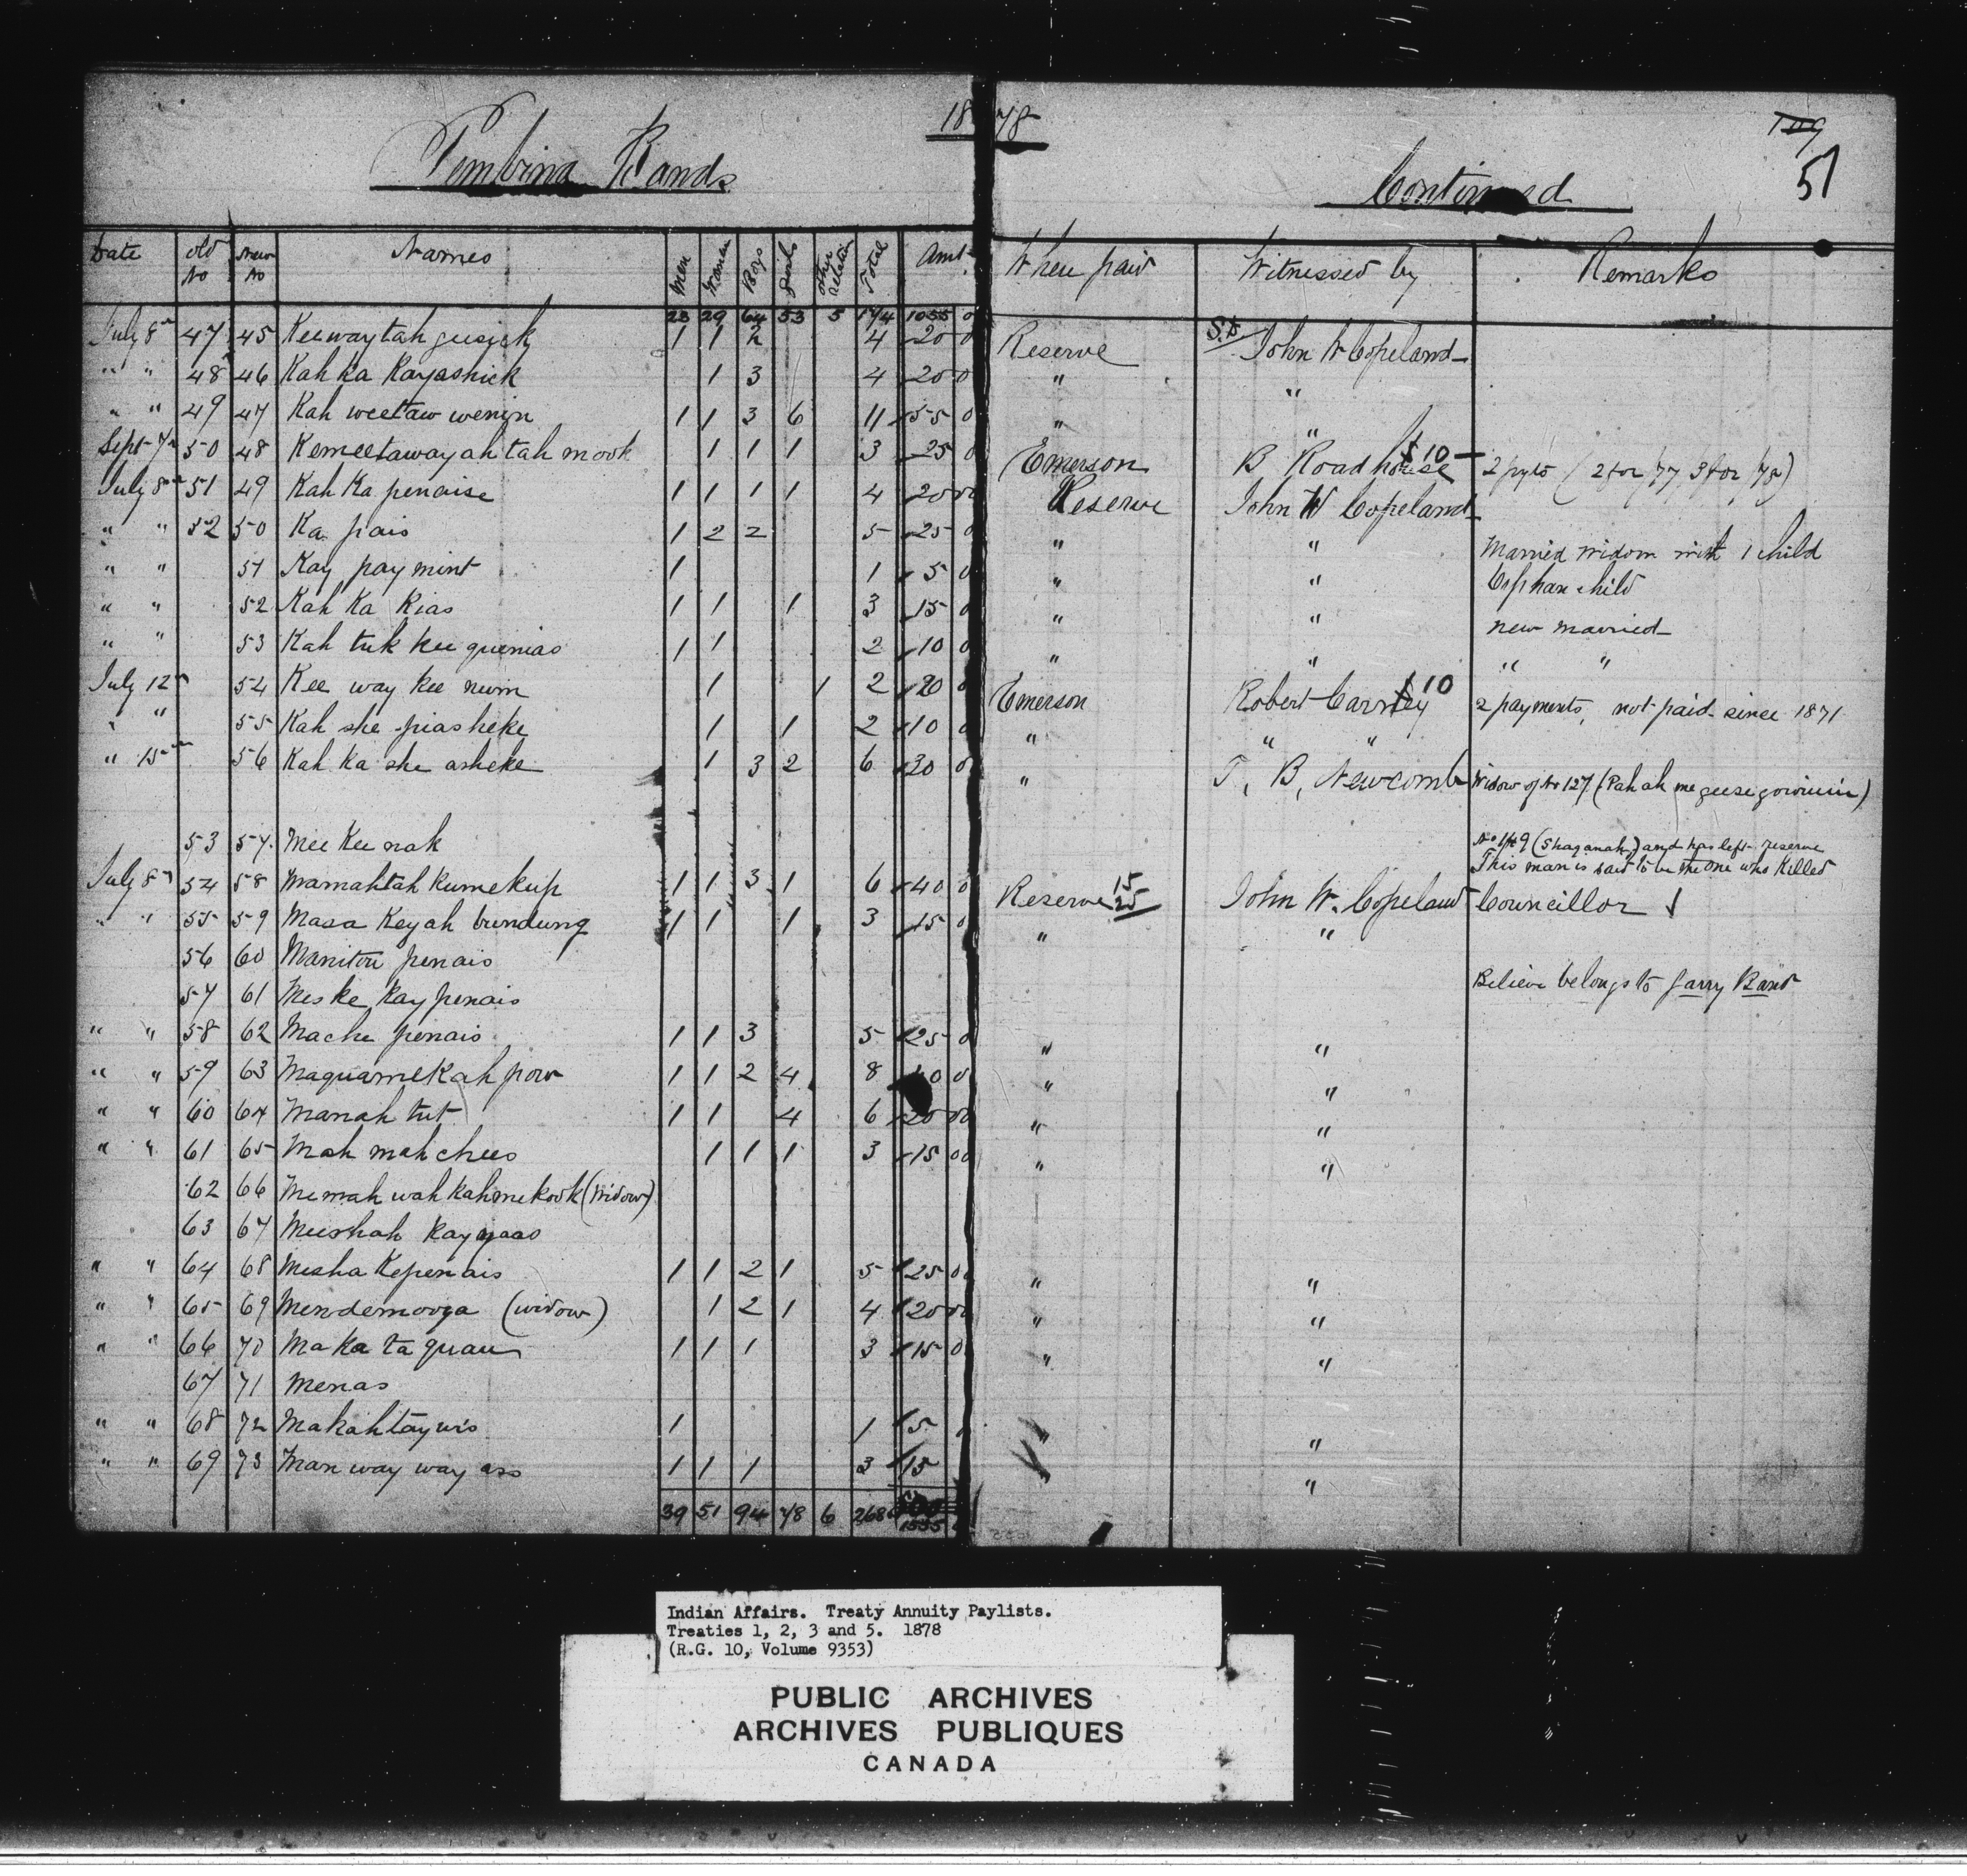 1878
109
51
Pembina Bands
Continued
Date Old No New No Names Men Women Boys Girls Other relation Total Amt When paid Witnessed by Remarks
23 29 64 53 5 174 1055 0
July 8 47 45 Keewaytah geesick 1 1 2 4 20 0 Reserve Sd John W Copeland
" " 48 46 Kah ka Kayashick 1 3 4 20 0 " "
" " 49 47 Kah weetaw wenin 1 1 3 6 11 55 0 " "
Sept 7 50 48 Kemeetawayah tah mook 1 1 1 3 25 0 Emerson B Roadhouse $10 2 pyts (2 for /77 3 for /78)
July 8 51 49 Kah Ka penaise 1 1 1 1 4 20 00 Reserve John W Copeland
" " 52 50 Ka pais 1 2 2 5 25 0 " " Married widow with 1 child
" " 51 Kay pay mint 1 1 5 0 " " Orphan child
" " 52 Kah Ka Kias 1 1 1 3 15 0 " " new married
" " 53 Kah tuk kee quenias 1 1 2 10 0 " " " "
July 12 54 Kee way kee num 1 1 2 20 0 Emerson Robert Carney $10 2 payments, not paid since 1871
" " 55 Kah she piasheke 1 1 2 10 0 " " "
" 15 56 Kah Ka she asheke 1 3 2 6 30 0 " T. B. Newcomb Widow of No 127 (Pah ah me geesigowinin)
53 57 Mee Kee nak No 149 (Shaganah) and has left reserve
This man is said to be the one who killed
July 8 54 58 Mamahtah kumekup 1 1 3 1 6 40 0 Reserve 15 25 John W. Copeland Councillor
" " 55 59 Masa Keyah bundung 1 1 1 3 15 0 " "
56 60 Manitou penais
57 61 Meske Kay penais Believe belongs to Garry Band
" " 58 62 Mache penais 1 1 3 5 25 0 " "
" " 59 63 Maquamekah pow 1 1 2 4 8 40 0 " "
" " 60 64 Manah tut 1 1 4 6 20 00 " "
" " 61 65 Mah mah chees 1 1 1 3 15 00 " "
62 66 Memah wah kahmekook (Widow)
63 67 Meeshah Kaygaas
" " 64 68 Mesha Kepenais 1 1 2 1 5 25 00 " "
" " 65 69 Mendemooya (widow) 1 2 1 4 20 00 " "
" " 66 70 Maka ta quan 1 1 1 3 15 0 " "
67 71 Menas
" " 68 72 Makahtaywis 1 1 5 " "
" " 69 73 Man way way ass 1 1 1 3 15 " "
39 51 94 78 6 268 1535
Indian Affairs. Treaty Annuity Paylists.
Treaties 1, 2, 3 and 5. 1878
(R.G. 10, Volume 9353)
PUBLIC ARCHIVES
ARCHIVES PUBLIQUES
CANADA